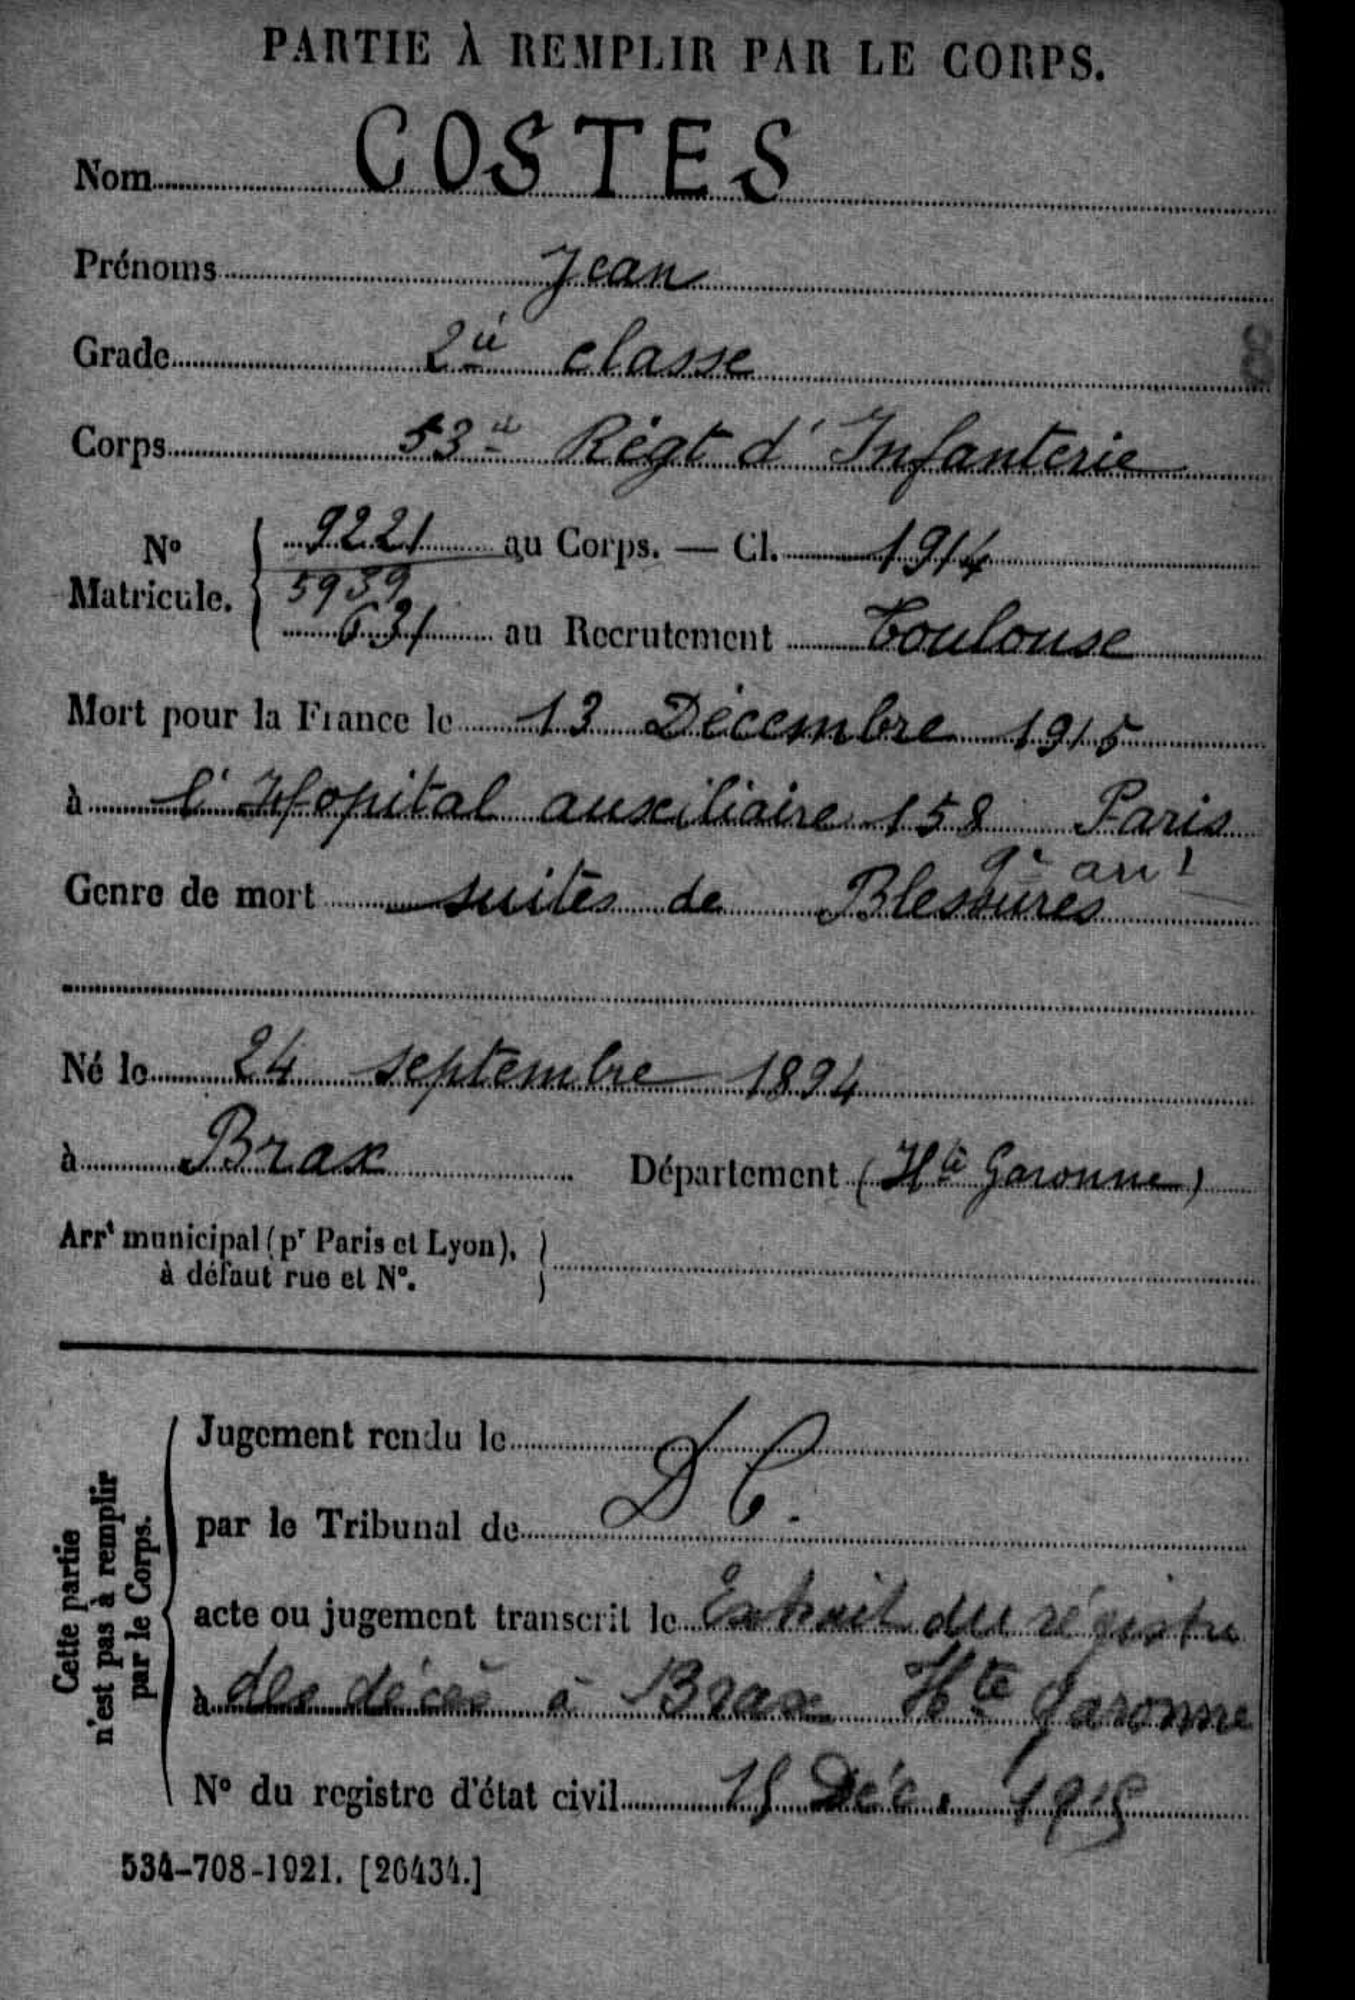 PARTIE À REMPLIR PAR LE CORPS.
Nom COSTES
Prénoms Jean
Grade 2è classe
Corps 53è Régt d'Infanterie
N° Matricule. 9221 au Corps. — Cl. 1914
5939
631 au Recrutement Toulouse
Mort pour la France le 13 Décembre 1915
à l'Hopital auxiliaire 158 Paris
9e arrt
Genre de mort suites de Blessures
Né le 24 septembre 1894
à Brax Département (Hte Garonne)
Arrt municipal (pr Paris et Lyon),
à défaut rue et N°.
Cette partie
n'est pas à remplir
par le Corps.
Jugement rendu le
par le Tribunal de D C.
acte ou jugement transcrit le Extrait du régistre
à des décès à Brax Hte Garonne
N° du registre d'état civil 15 Déc. 1915
534-708-1921. [26434.]
8